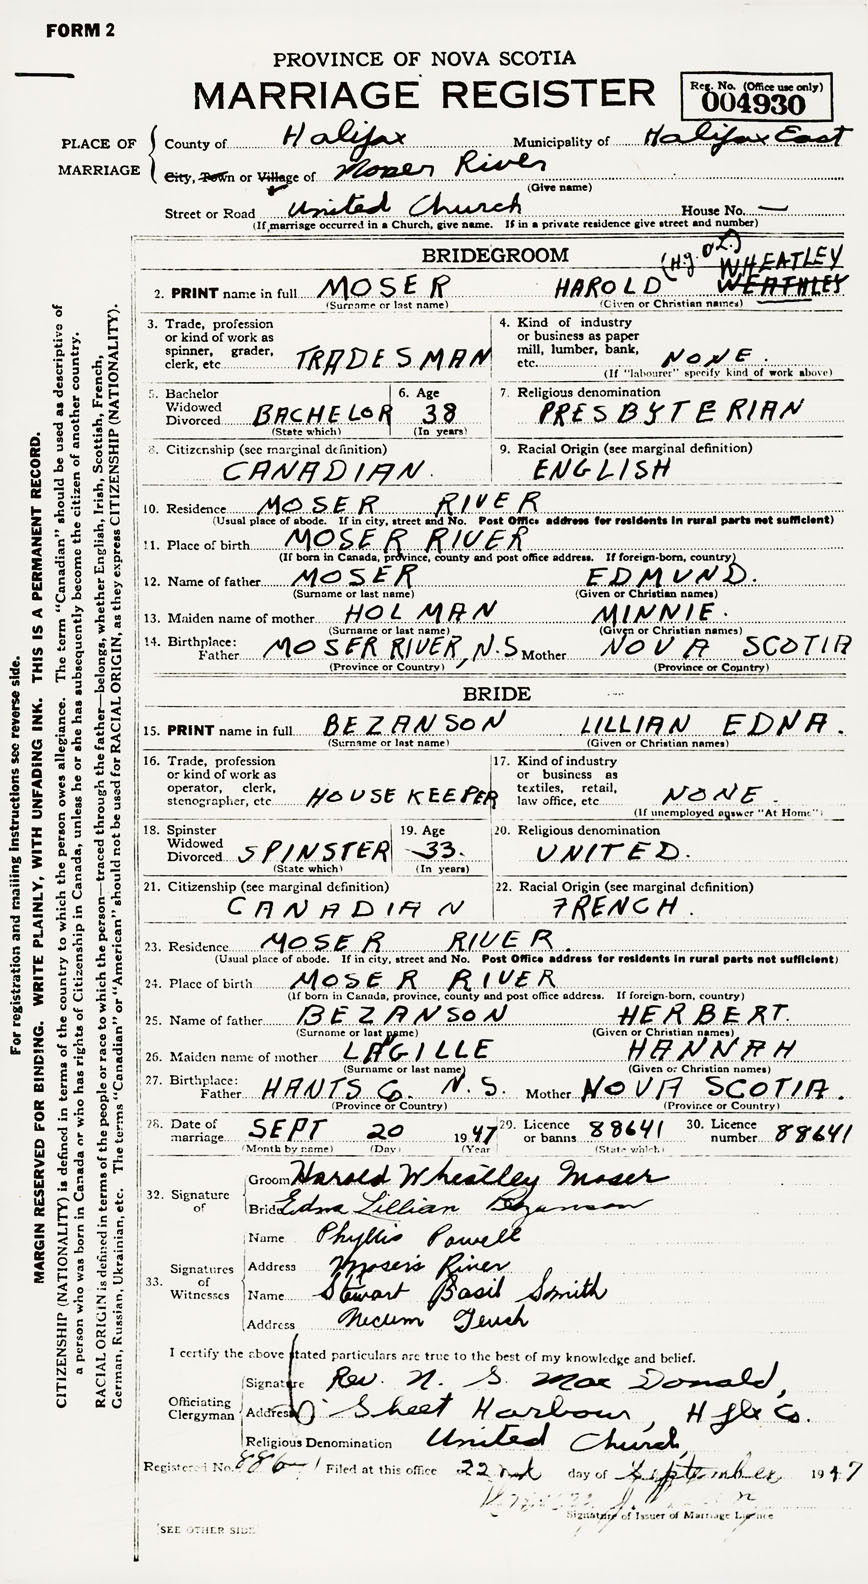 FORM 2
PROVINCE OF NOVA SCOTIA
MARRIAGE REGISTER
Reg. No. (Office use only)
004930
PLACE OF MARRIAGE
County of Halifax Municipality of Halifax East
City, Town or Village of Moser River
(Give name)
Street or Road United Church House No. —
(If marriage occurred in a Church, give name. If in a private residence give street and number)
BRIDEGROOM
WHEATLEY
2. PRINT name in full MOSER HAROLD WEATHLEY
(Surname or last name) (Given or Christian names)
3. Trade, profession or kind of work as spinner, grader, clerk, etc. TRADESMAN
4. Kind of industry or business as paper mill, lumber, bank, etc. NONE.
(If "labourer" specify kind of work above)
5. Bachelor Widowed Divorced BACHELOR
(State which)
6. Age 38
(In years)
7. Religious denomination
PRESBYTERIAN
8. Citizenship (see marginal definition)
CANADIAN.
9. Racial Origin (see marginal definition)
ENGLISH
10. Residence MOSER RIVER
(Usual place of abode. If in city, street and No. Post Office address for residents in rural parts not sufficient)
11. Place of birth MOSER RIVER
(If born in Canada, province, county and post office address. If foreign-born, country)
12. Name of father MOSER EDMUND.
(Surname or last name) (Given or Christian names)
13. Maiden name of mother HOLMAN MINNIE.
(Surname or last name) (Given or Christian names)
14. Birthplace: Father MOSER RIVER, N.S Mother NOVA SCOTIA
(Province or Country) (Province or Country)
BRIDE
15. PRINT name in full BEZANSON LILLIAN EDNA.
(Surname or last name) (Given or Christian names)
16. Trade, profession or kind of work as operator, clerk, stenographer, etc. HOUSEKEEPER
17. Kind of industry or business as textiles, retail, law office, etc. NONE.
(If unemployed answer "At Home")
18. Spinster Widowed Divorced SPINSTER
(State which)
19. Age 33.
(In years)
20. Religious denomination
UNITED.
21. Citizenship (see marginal definition)
CANADIAN
22. Racial Origin (see marginal definition)
FRENCH.
23. Residence MOSER RIVER.
(Usual place of abode. If in city, street and No. Post Office address for residents in rural parts not sufficient)
24. Place of birth MOSER RIVER
(If born in Canada, province, county and post office address. If foreign-born, country)
25. Name of father BEZANSON HERBERT.
(Surname or last name) (Given or Christian names)
26. Maiden name of mother LAGILLE HANNAH
(Surname or last name) (Given or Christian names)
27. Birthplace: Father HANTS Co. N.S. Mother NOVA SCOTIA.
(Province or Country) (Province or Country)
28. Date of marriage SEPT 20 1947 29. Licence or banns 88641 30. Licence number 88641
(Month by name) (Day) (Year) (State which)
32. Signature of
Groom Harold Wheatley Moser
Bride Edna Lillian Bezanson
33. Signatures of Witnesses
Name Phyllis Powell
Address Mosers River
Name Stewart Basil Smith
Address Necum Teuch
I certify the above stated particulars are true to the best of my knowledge and belief.
Officiating Clergyman
Signature Rev. N. S. MacDonald,
Address Sheet Harbour, Hfx Co.
Religious Denomination United Church
Registered No. Filed at this office 22nd day of September 1947
Signature of Issuer of Marriage Licence
SEE OTHER SIDE
For registration and mailing instructions see reverse side.
MARGIN RESERVED FOR BINDING. WRITE PLAINLY, WITH UNFADING INK. THIS IS A PERMANENT RECORD.
CITIZENSHIP (NATIONALITY) is defined in terms of the country to which the person owes allegiance. The term "Canadian" should be used as descriptive of
a person who was born in Canada or who has rights of Citizenship in Canada, unless he or she has subsequently become the citizen of another country.
RACIAL ORIGIN is defined in terms of the people or race to which the person—traced through the father—belongs, whether English, Irish, Scottish, French,
German, Russian, Ukrainian, etc. The terms "Canadian" or "American" should not be used for RACIAL ORIGIN, as they express CITIZENSHIP (NATIONALITY).